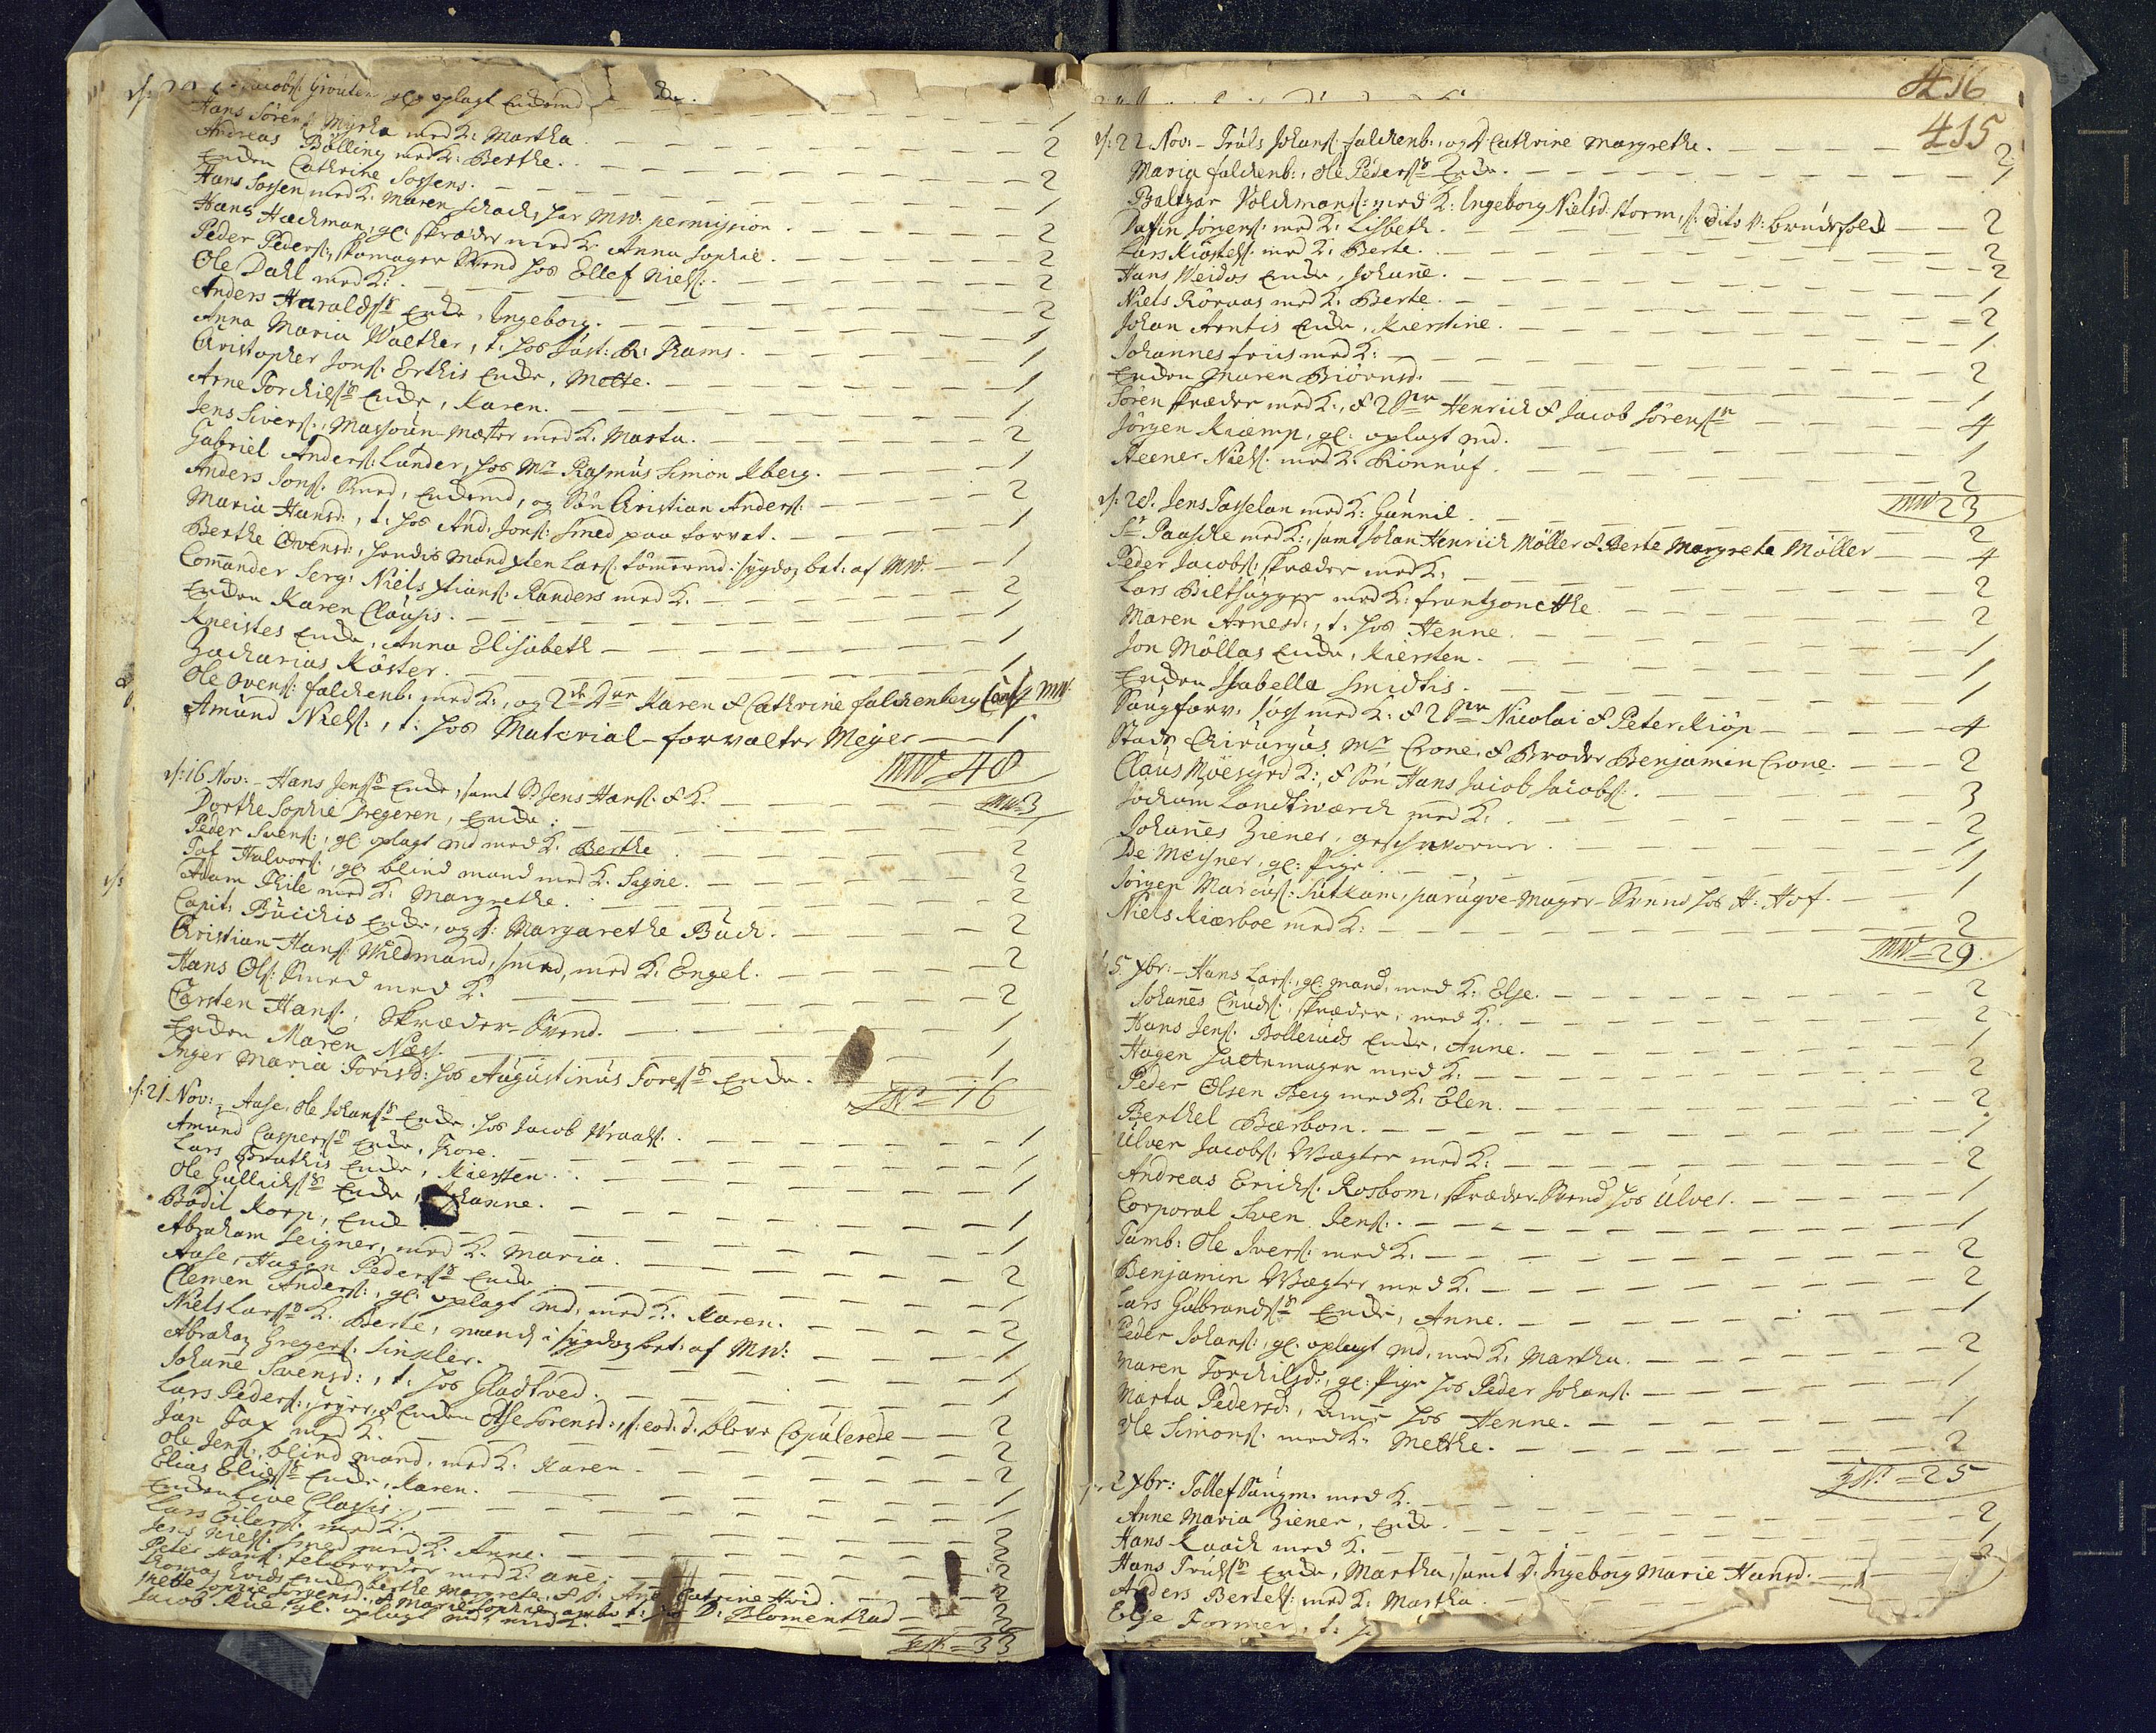 Jacobs: gl: oplagt
Hans Sörens: Myrha med K: Martha 2
Andreas Bölling med K: Berthe. 2
Enken Cathrine Sossens. 1
Hans Sossen med K: Maren Schach, har MW: permission 2
Hans Hackman, gl: skræder med K: Anna Sophie. 2
Peder Peders: skomager Svend hos Ellef Niels: 2
Ole Dahl med K: 2
Anders Haralds: Enke, Ingeborg. 1
Anna Maria Walther, t: hos Just: R: Thams. 1
Christopher Jons: Erthis Enke, Mette. 1
Arne Torchils: Enke, Karen. 1
Jens Sivers:, Massoun-Mæster med K: Marta. 2
Gabriel Anders: Lunder, hos Mr Rasmus Simon Kberg. 1
Anders Jons: Smed, Enkemd, og Søn Christian Anders: 2
Maria Hansd:, t: hos And: Jons: Smed paa forvat. 1
Berthe Ovensd:, hendis Mand Sten Lars: tömmermd: sygdoz bet: af MW: 1
Commander Serg: Niels Stians: Randers med K. 2
Enken Karen Clausis. 1
Kneistes Enke, Anna Elisabeth 1
Zacharias Köster. 1
Ole Ovens: falckenb: med K:, og 2de Karen & Cathrine falckenberg 4 MW:
Amund Niels:, t: hos Material-forvalter Meyer 1
MW 40
16 Nov: Hans Jens: Enke, samt S: Jens Hans: & K: MW 3
Dorthe Sophie Dregeren, Enke: 1
Peder Svens:, gl: oplagt md med K: Berthe 2
Tof Halvors:, gl: blind mand med K: Signe. 2
Adam Thile med K: Margrethe. 2
Capit: Büchis Enke, og D: Margarethe Büch. 2
Christian Hans: Wildmand, smed, med K: Engel. 2
Hans Ols: Smed med K: 2
Carsten Hans:, Skræder-Svend. 1
Enken Maren Næss. 1
Inger Maria Torisd: hos Augustinus Tores: Enke. 1
16
21 Nov: Aase, Ole Johans: Enke hos Jacob Wraals: 1
Amund Caspers: Enke, Thore. 1
Lars Bruthis Enke, Kiersten. 1
Ole Gullichs: Enke, Johanne. 1
Bodil Korp, Enke 1
Abraham Seigner, med K: Maria. 2
Aase, Hagen Peders: Enke 1
Clemen Anders:, gl: oplagt md, med K: Karen. 2
Niels Lars: K: Berte, mand i sygdoz bet: af MW: 1
Abraham Gregers: Sinkler. 1
Johanne Svensd:, t: hos Gladtved. 1
Lars Peders:, & Enken Else Sörensd:, eod: d: bleve Copulerede 2
Jan Fax med K: 2
Ole Jens: blind mand, med K: Karen. 2
Elias Elias: Enke, Karen. 1
Enken Live Classis. 1
Lars Eilers: med K: 2
Jens Niels: smed med K: Anne. 2
Peter Hans: med K: ane. 2
Thomas Enke Berthe Margrete, & D: Ane Catrine Hvid. 2
Mette Sophie & Marie Sophie, t: hos D: Blomenthad 2
Jacob gl: oplagt md, med K: 2
33
416
415
22 Nov: Truls Johans: falckenb: og D Cathrine Margrethe. 2
Maria falckenb:, Ole Peders: Enke. 1
Baltzar Volckmans: med K: Ingeborg Nielsd: Storm, dito v: brudefold 2
Daffin Jörgens: med K: Lisbeth 2
Lars Kiöstels: med K: Berte. 2
Hans Weidos Enke, Johanne. 1
Niels Röraas med K: Berte. 2
Johan Arntis Enke, Kierstine. 1
Johannes friis med K: 2
Enken Maren Biörnsd: 1
Sören skræder med K:, & 2 Henrich & Jacob Sörens: 4
Jörgen Kæmp, gl: oplagt md. 1
Steener Niels: med K: Rönnuf. 2
MW 23
28. Jens Tasselan med K: Gunnil 2
Sr Paasche med K:, samt Johan Henrich Möller & Berte Margrete Möller 4
Peder Jacobs: skræder med K: 2
Lars Bilthugger med K: frantzonette 2
Maren Arnesd:, t: hos Henne. 1
Jon Möllas Enke, Kiersten. 1
Enken Isabella Smidtis. 1
Voss med K: & 2 Nicolai & Peter Kiöp 4
Stads Chirurgus Mr Crone, & Broder Benjamin Crone. 2
Claus K:, & Søn Hans Jacob Jacobs: 3
Jochum Landtwærch med K: 2
Johannes Ziener, geschworner 1
De Meisner, gl: Pige. 1
Jörgen Marcus: Sutkam, paruqve-Mager-Svend hos H: Hof. 1
Niels Kiærboe med K: 2
MW 29.
5 xbr: Hans Lars:, gl: mand, med K: Else. 2
Johannes Cnuds:, skræder, med K: 2
Hans Jens: Bolleruds Enke, Anne. 1
Hagen hattemager med K: 2
Peder Olsen Berg med K: Elen. 2
Berthel Bærbom. 1
Ulver Jacobs: Wægter med K: 2
Andreas Erichs: Rosbom, skræder-Svend hos Ulver. 1
Corporal Sven Jens: 1
Tamb: Ole Ivers: med K: 2
Benjamin Wægter med K: 2
Lars Gulbrands: Enke, Anne. 1
Peder Johans:, gl: oplagt md, med K: Martha. 2
Maren Torchilsd:, gl: Pige hos Peder Johans: 1
Marta Pedersd:, hos Henne. 1
Ole Simons: med K: Mette. 2
25
2 xbr: Tollef med K: 2
Anne Maria Ziener, Enke 1
Hans Raach med K: 2
Hans Truls: Enke, Martha, samt D: Ingeborg Marie Hansd:
Anders Bertels: med K: Martha
Else Former, t: